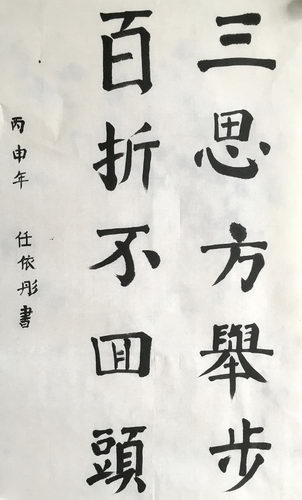 三思方舉步
百折不回頭
丙申年 任依彤書